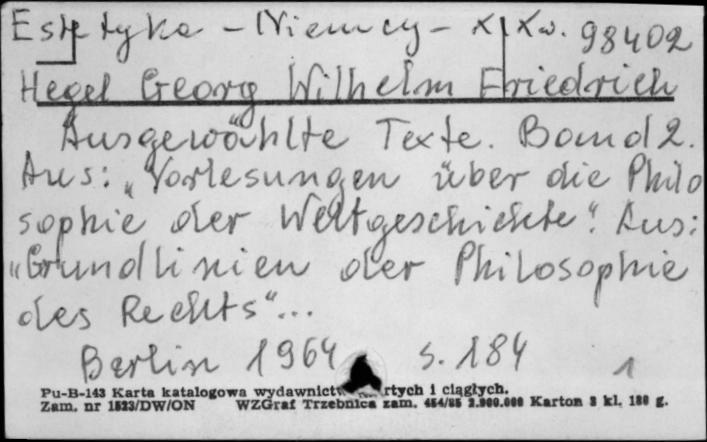 Estetyka - Niemcy - XIXw. 98402
Hegel Georg Wilhelm Friedrich
Ausgewählte Texte. Band 2.
Aus: „Vorlesungen über die Philo
sophie der Weltgeschichte“. Aus:
„Grundlinien der Philosophie
des Rechts“...
Berlin 1964 s. 184 1
Pu-B-143 Karta katalogowa wydawnictw zwartych i ciągłych.
Zam. nr 1523/DW/ON WZGraf Trzebnica zam. 454/85 2.000.000 Karton 3 kl. 180 g.